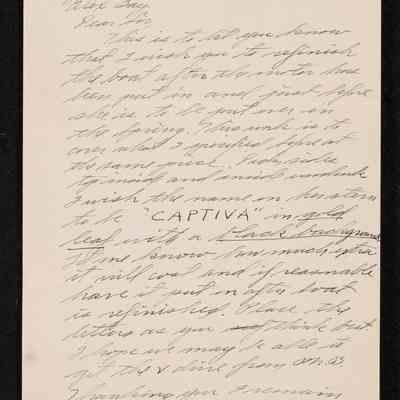 Alex Gay
Dear Sir
This is to let you know
that I wish you to refinish
the boat after the motor has
been put in and just before
she is to be put over in
the Spring. This work is to
cover what I specified before at
the same price. Both sides
top inside and outside
I wish the name on her stern
to be "CAPTIVA" in gold
leaf with a black background
Let me know how much extra
it will cost and if reasonable
have it put on after boat
is refinished. Place the
letters as you think best
I hope we may be able to
get the drive from
Thanking you I remain